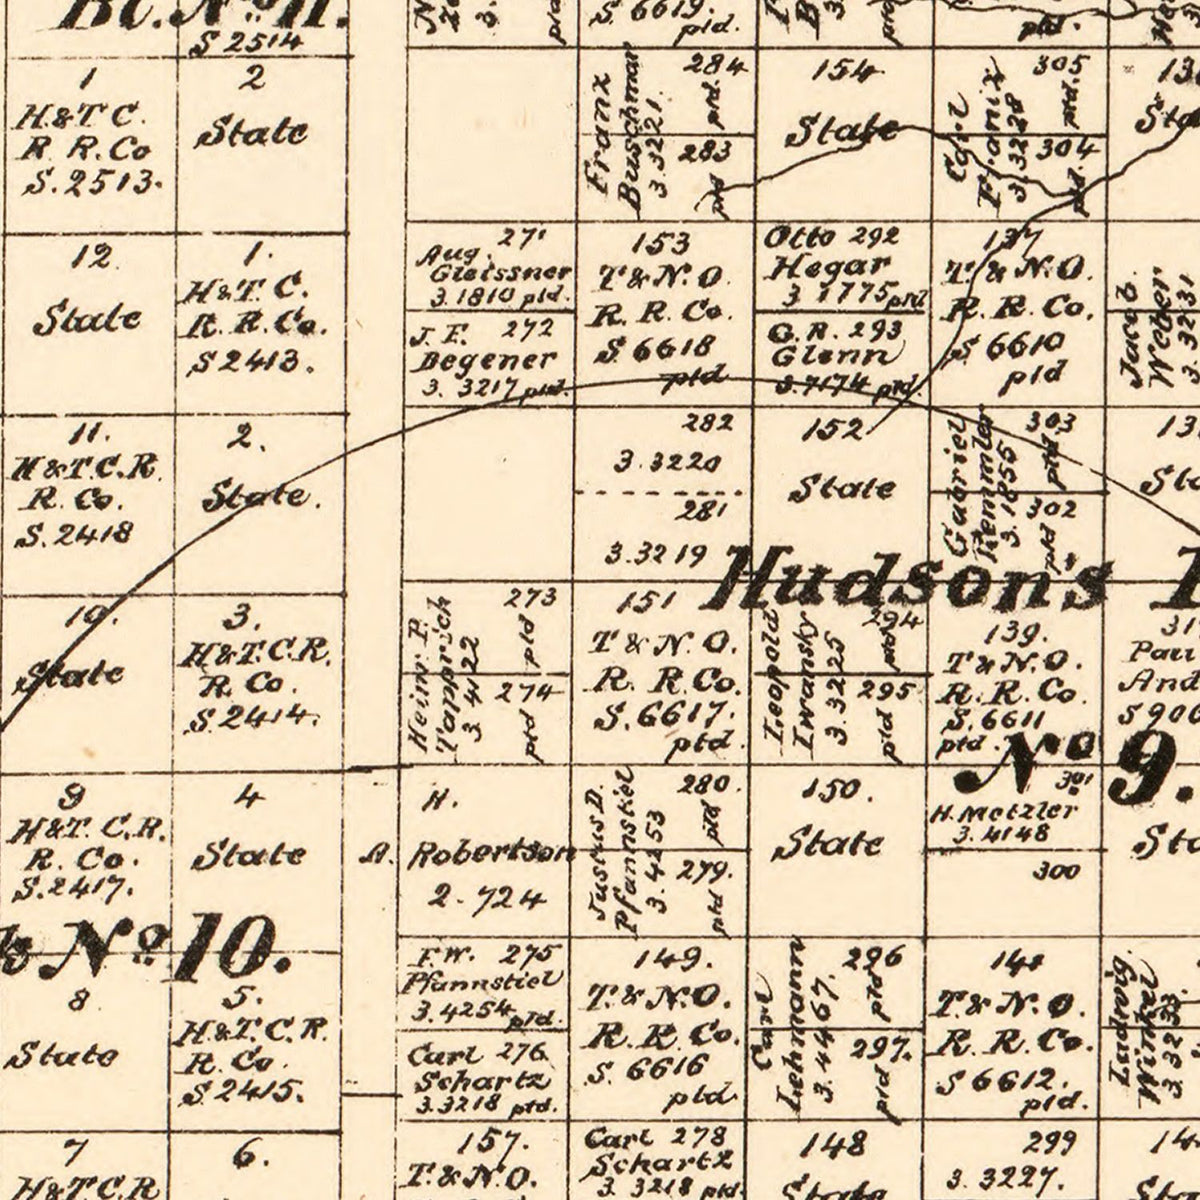 Bl. No 11.
S 2514
S. 6619.
ptd.
1
H&T C.
R R. Co
S. 2513.
2
State
Franz
Buschman
3.3221.
284
ptd.
283
ptd
154
State
Carl
3.3228
305
ptd.
304
ptd.
12
State
1.
H&T. C.
R. R. Co.
S 2413.
Aug. 271
Gleissner
3.1810 ptd.
J. F. 272
Begener
3.3217 ptd.
153
T&N.O
R. R. Co.
S 6618
ptd
Otto 292
Hegar
3 1775 ptd
G.R. 293
Glenn
3.7174 ptd.
137
T&N.O.
R. R. Co.
S 6610
ptd
Jacob
Weber
3.3231
11.
H&T.C.R.
R. Co.
S. 2418
2.
State.
282
3.3220
281
3.3219
152
State
Gabriel
Remmler
3.1855
303
ptd.
302
ptd
Hudson's
10.
State
3.
H&T.C.R.
R. Co.
S. 2414.
Heinr P.
Tapprich
3.4122
273
ptd
274
ptd
151
T&N.O.
R. R. Co.
S. 6617.
ptd.
Leopold
Iwansky
3.3225
294
ptd
295
ptd
139.
T&N.O.
R. R. Co.
S. 6611
ptd.
No 9.
9
H&T. C.R.
R. Co.
S. 2417.
4
State
H.
A. Robertson
2-724
Justus D.
Pfannstiel
3.4253
280.
ptd
279.
ptd
150.
State
301
H. Metzler
3.4148
300
No 10.
8
State
5.
H&T.C.R.
R. Co.
S 2415.
F.W. 275
Pfannstiel
3.4254 ptd.
Carl 276
Schartz
3.3218 ptd.
149.
T.&N.O.
R. R. Co.
S. 6616
ptd.
Carl
Lehmann
3.4467.
296
ptd
297.
ptd
T.&N.O
R. R. Co.
S 6612.
ptd.
Ludwig
Winkel
3.3233.
7
H&T.C.R
6.
157.
T.&N.O.
Carl 278
Schartz
3.3218 ptd.
148
State
299
3.3227.